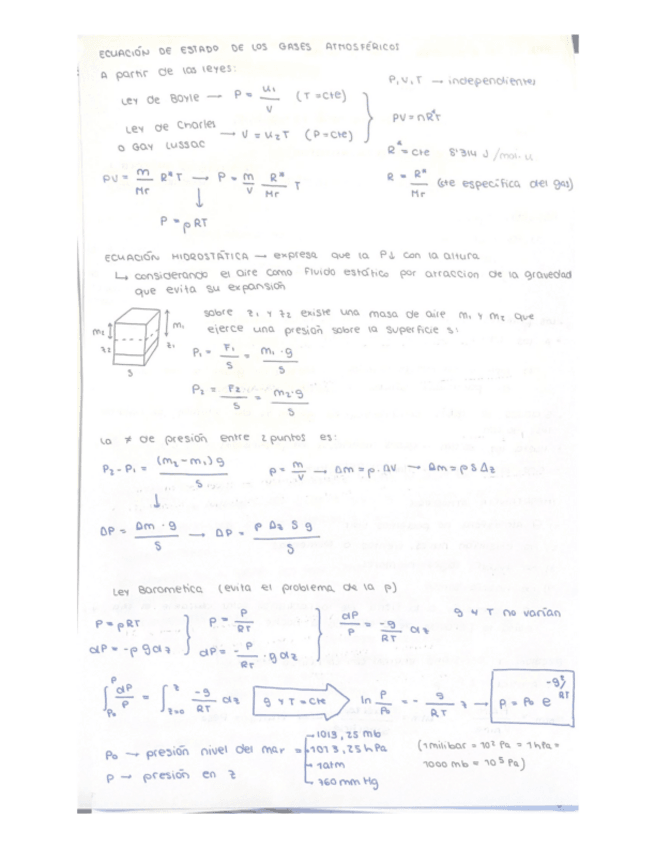 ECUACIÓN DE ESTADO DE LOS GASES ATMOSFÉRICOS
A partir de las leyes:
P, V, T → independientes
Ley de Boyle → P = u₁/V (T = cte)
PV = nR*T
Ley de Charles o Gay Lussac → V = u₂T (P = cte)
R* = cte 8'314 J/mol·u
PV = m/Mr R*T → P = m/V R*/Mr T
R = R*/Mr (cte específica del gas)
↓
P = ρRT
ECUACIÓN HIDROSTÁTICA → expresa que la P↓ con la altura
↳ considerando el aire como fluido estático por atraccion de la gravedad
que evita su expansión
sobre z₁ y z₂ existe una masa de aire m₁ y m₂ que
ejerce una presión sobre la superficie s:
m₂ z₂ m₁ z₁ s
P₁ = F₁/S = m₁·g/S
P₂ = F₂/S = m₂·g/S
La ≠ de presión entre 2 puntos es:
P₂-P₁ = (m₂-m₁)g/S ρ = m/V → Δm = ρ·ΔV → Δm = ρSΔz
↓
ΔP = Δm·g/S → ΔP = ρ Δz S g/S
Ley Barometica (evita el problema de la ρ)
P = ρRT ρ = P/RT dP/P = -g/RT dz g y T no varían
dP = -ρgdz dP = -P/RT·gdz
∫P₀^P dP/P = ∫z=0^z -g/RT dz g y T = cte ln P/P₀ = - g/RT z → P = P₀ e^-gz/RT
P₀ → presión nivel del mar = 1013,25 mb
1013,25 hPa
1 atm
760 mm Hg
(1 milibar = 10² Pa = 1 hPa =
1000 mb = 10⁵ Pa)
P → presión en z